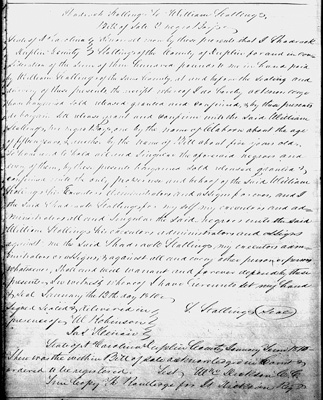 Shadrach Stallings To William Stallings
Bill of Sale 2 negro Boys
State of N Carolina Know all men by these presents that I Shadrach
Duplin County Stallings of the County of Duplin for and in con
sideration of the sum of five hundred pounds to me in hand paid
by William Stallings of the same County, at and before the sealing and
delivery of these presents the receipt whereof I do hereby acknowledge
have bargained sold released granted and confirmed, & by these presents
do bargain sell release grant and confirm unto the said William
Stallings, negroes, one by the name of about the age
of fifteen years, & another by the name of Bill about five years old,
To have & to hold all and Singular the aforesaid negroes and
of them, by these presents bargained sold released granted &
confirmed unto the only proper use and behoof of the said William
Stallings his Executors Administrators and assigns forever, and I
the said Shadrach Stallings for my self my executors and ad-
ministrators all and Singular the said negroes unto the said
William Stallings his executors administrators and assigns
against me the said Shadrach Stallings, my executors admin
istrators or assigns, & against all and every other person or persons
whatsoever, shall and will warrant and forever defend by these
presents, In witness whereof I have hereunto set my hand
& seal January the 13th day
Signed Sealed & delivered in S Stallings (Seal)
presence of Robinson
Jas
State of N Carolina Duplin County January Term
Then was the within Bill of sale acknowledged in
ordered to be registered. Test Wm Dickson C.C.
True Copy Routledge for Dickson Regr